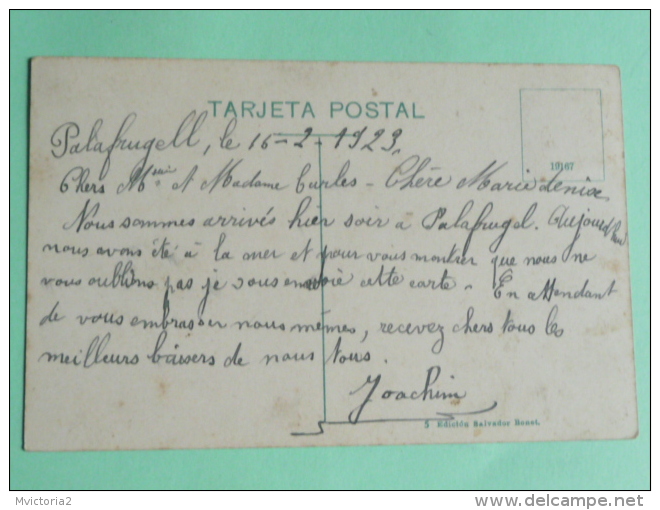 TARJETA POSTAL
Palafrugell, le 16-2-1923.
19167
Chers Msieu et Madame Curles - Chère Marie denise
Nous sommes arrivés hier soir à Palafrugel. Aujourd'hui
nous avons été à la mer et pour vous montrer que nous ne
vous oublions pas je vous envoie cette carte - En attendant
de vous embrasser nous mêmes, recevez chers tous les
meilleurs baisers de nous tous.
Joachim
5 Edición Salvador Bonet.
Mvictoria2
delcampe.net